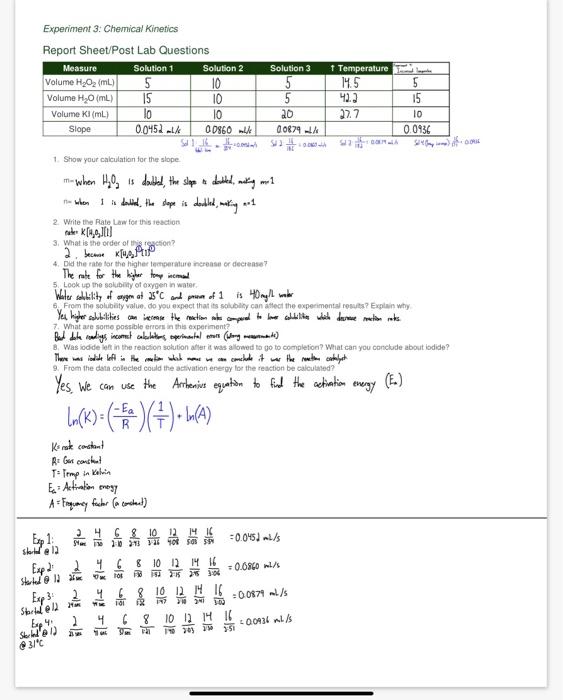 Experiment 3: Chemical Kinetics
Report Sheet/Post Lab Questions
Measure Solution 1 Solution 2 Solution 3 ↑ Temperature
Volume H₂O₂ (mL) 5 10 5 14.5 5
Volume H₂O (mL) 15 10 5 42.2 15
Volume KI (mL) 10 10 20 27.7 10
Slope 0.0452 mL/s 0.0860 mL/s 0.0879 mL/s 0.0936
1. Show your calculation for the slope.
m- when H₂O₂ is doubled, the slope is doubled, making m=1
n- when I is doubled, the slope is doubled, making n=1
2. Write the Rate Law for this reaction
rate= K[H₂O₂][I]
3. What is the order of this reaction?
2, because K[H₂O₂]¹[I]¹
4. Did the rate for the higher temperature increase or decrease?
The rate for the higher temp increased
5. Look up the solubility of oxygen in water.
Water solubility of oxygen at 25°C and pressure of 1 is 40mg/L water
6. From the solubility value, do you expect that its solubility can affect the experimental results? Explain why.
Yes, higher solubilities can increase the reaction rates compared to lower solubilities which decrease reaction rates.
7. What are some possible errors in this experiment?
Bad data readings, incorrect calculations, experimental errors (wrong measurements)
8. Was iodide left in the reaction solution after it was allowed to go to completion? What can you conclude about iodide?
There was iodide left in the reaction which means we can conclude it was the reaction catalyst.
9. From the data collected could the activation energy for the reaction be calculated?
Yes, we can use the Arrhenius equation to find the activation energy (Eₐ)
ln(K) = (-Ea/R)(1/T) + ln(A)
K= rate constant
R= Gas constant
T= Temp in Kelvin
Eₐ= Activation energy
A= Frequency factor (a constant)
Exp 1: 2 4 6 8 10 12 14 16 = 0.0452 mL/s
Started @ 12
Exp 2: 2 4 6 8 10 12 14 16 = 0.0860 mL/s
Started @ 12
Exp 3: 2 4 6 8 10 12 14 16 = 0.0879 mL/s
Started @ 12
Exp 4: 2 4 6 8 10 12 14 16 = 0.0936 mL/s
Started @ 12
@ 31°C